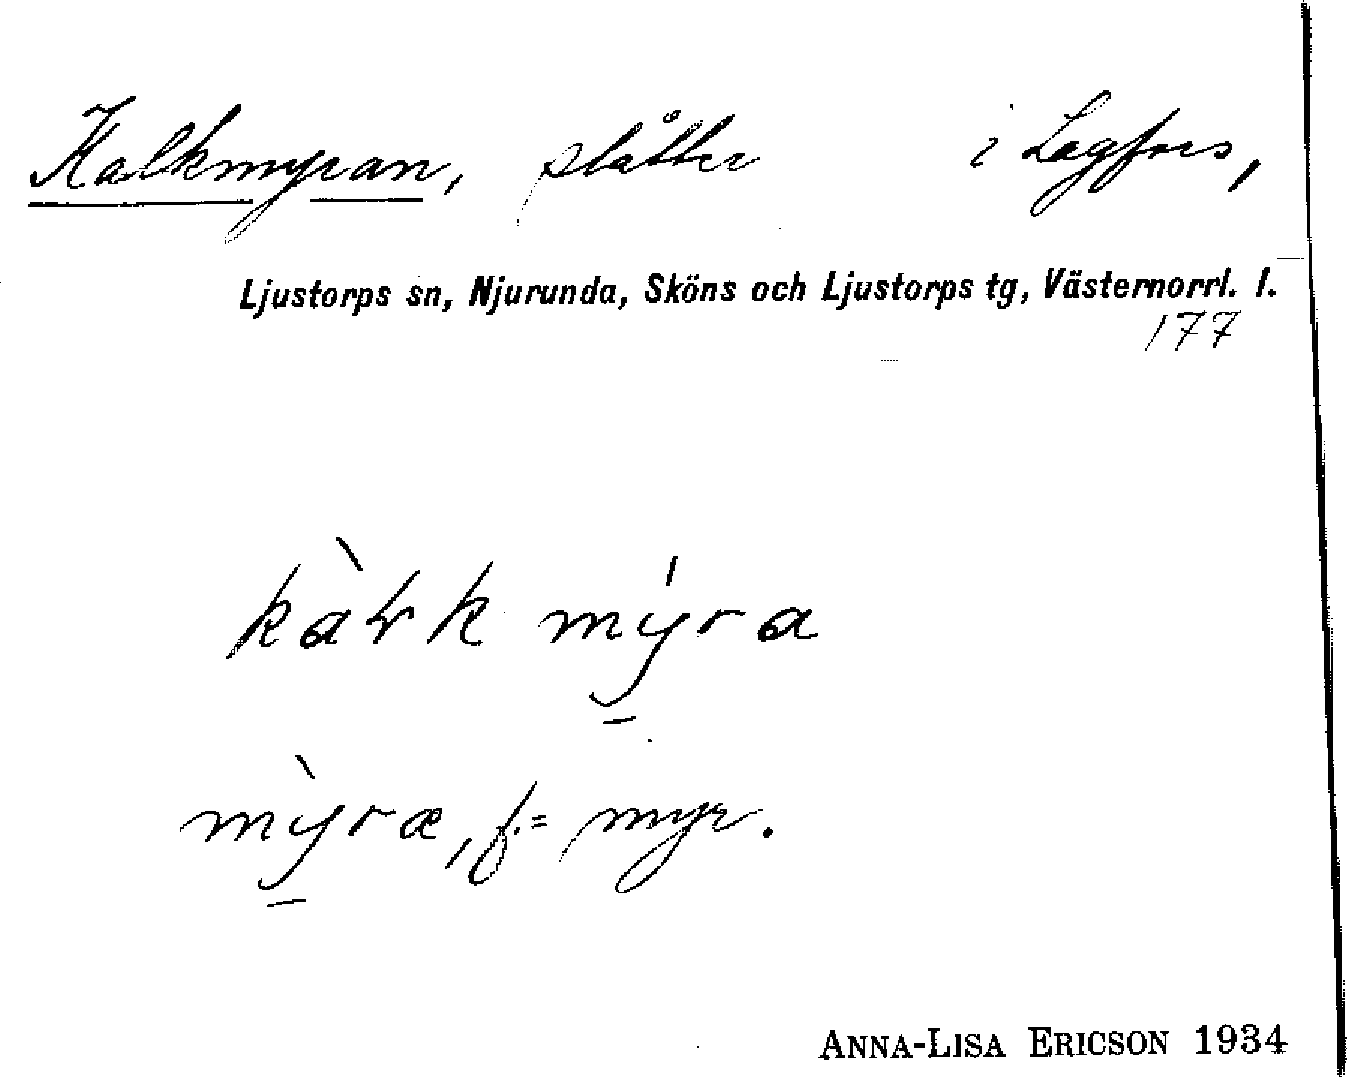 Kalkmyran, slåtter i Lagfors,
Ljustorps sn, Njurunda, Sköns och Ljustorps tg, Västernorrl. l.
177
kàɽk mýra
mỳræ, f. = myr.
ANNA-LISA ERICSON 1934